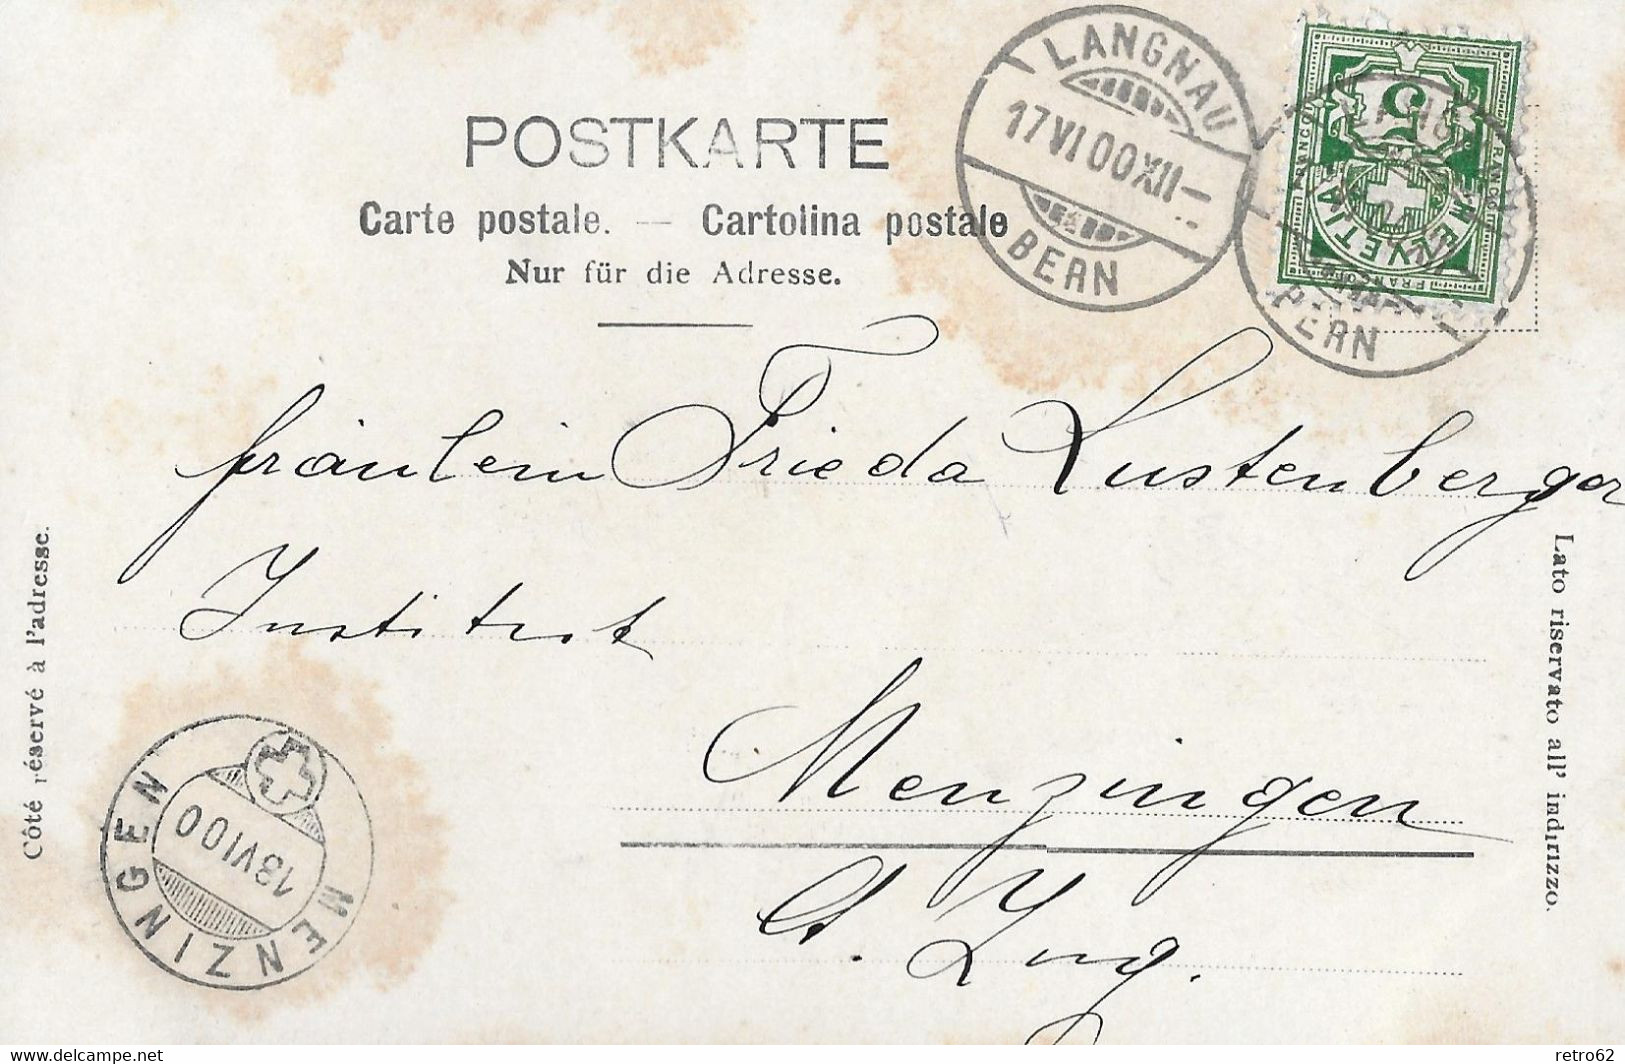 POSTKARTE
Carte postale. — Cartolina postale
Nur für die Adresse.
LANGNAU
17 VI 00 XII
BERN
BERN
5
FRANCO
HELVETIA
Fräulein Frieda Lustenberger
Institut
Menzingen
Ct. Zug.
Côté réservé à l'adresse.
Lato riservato all' indirizzo.
MENZINGEN
18 VI 00
www.delcampe.net
retro62